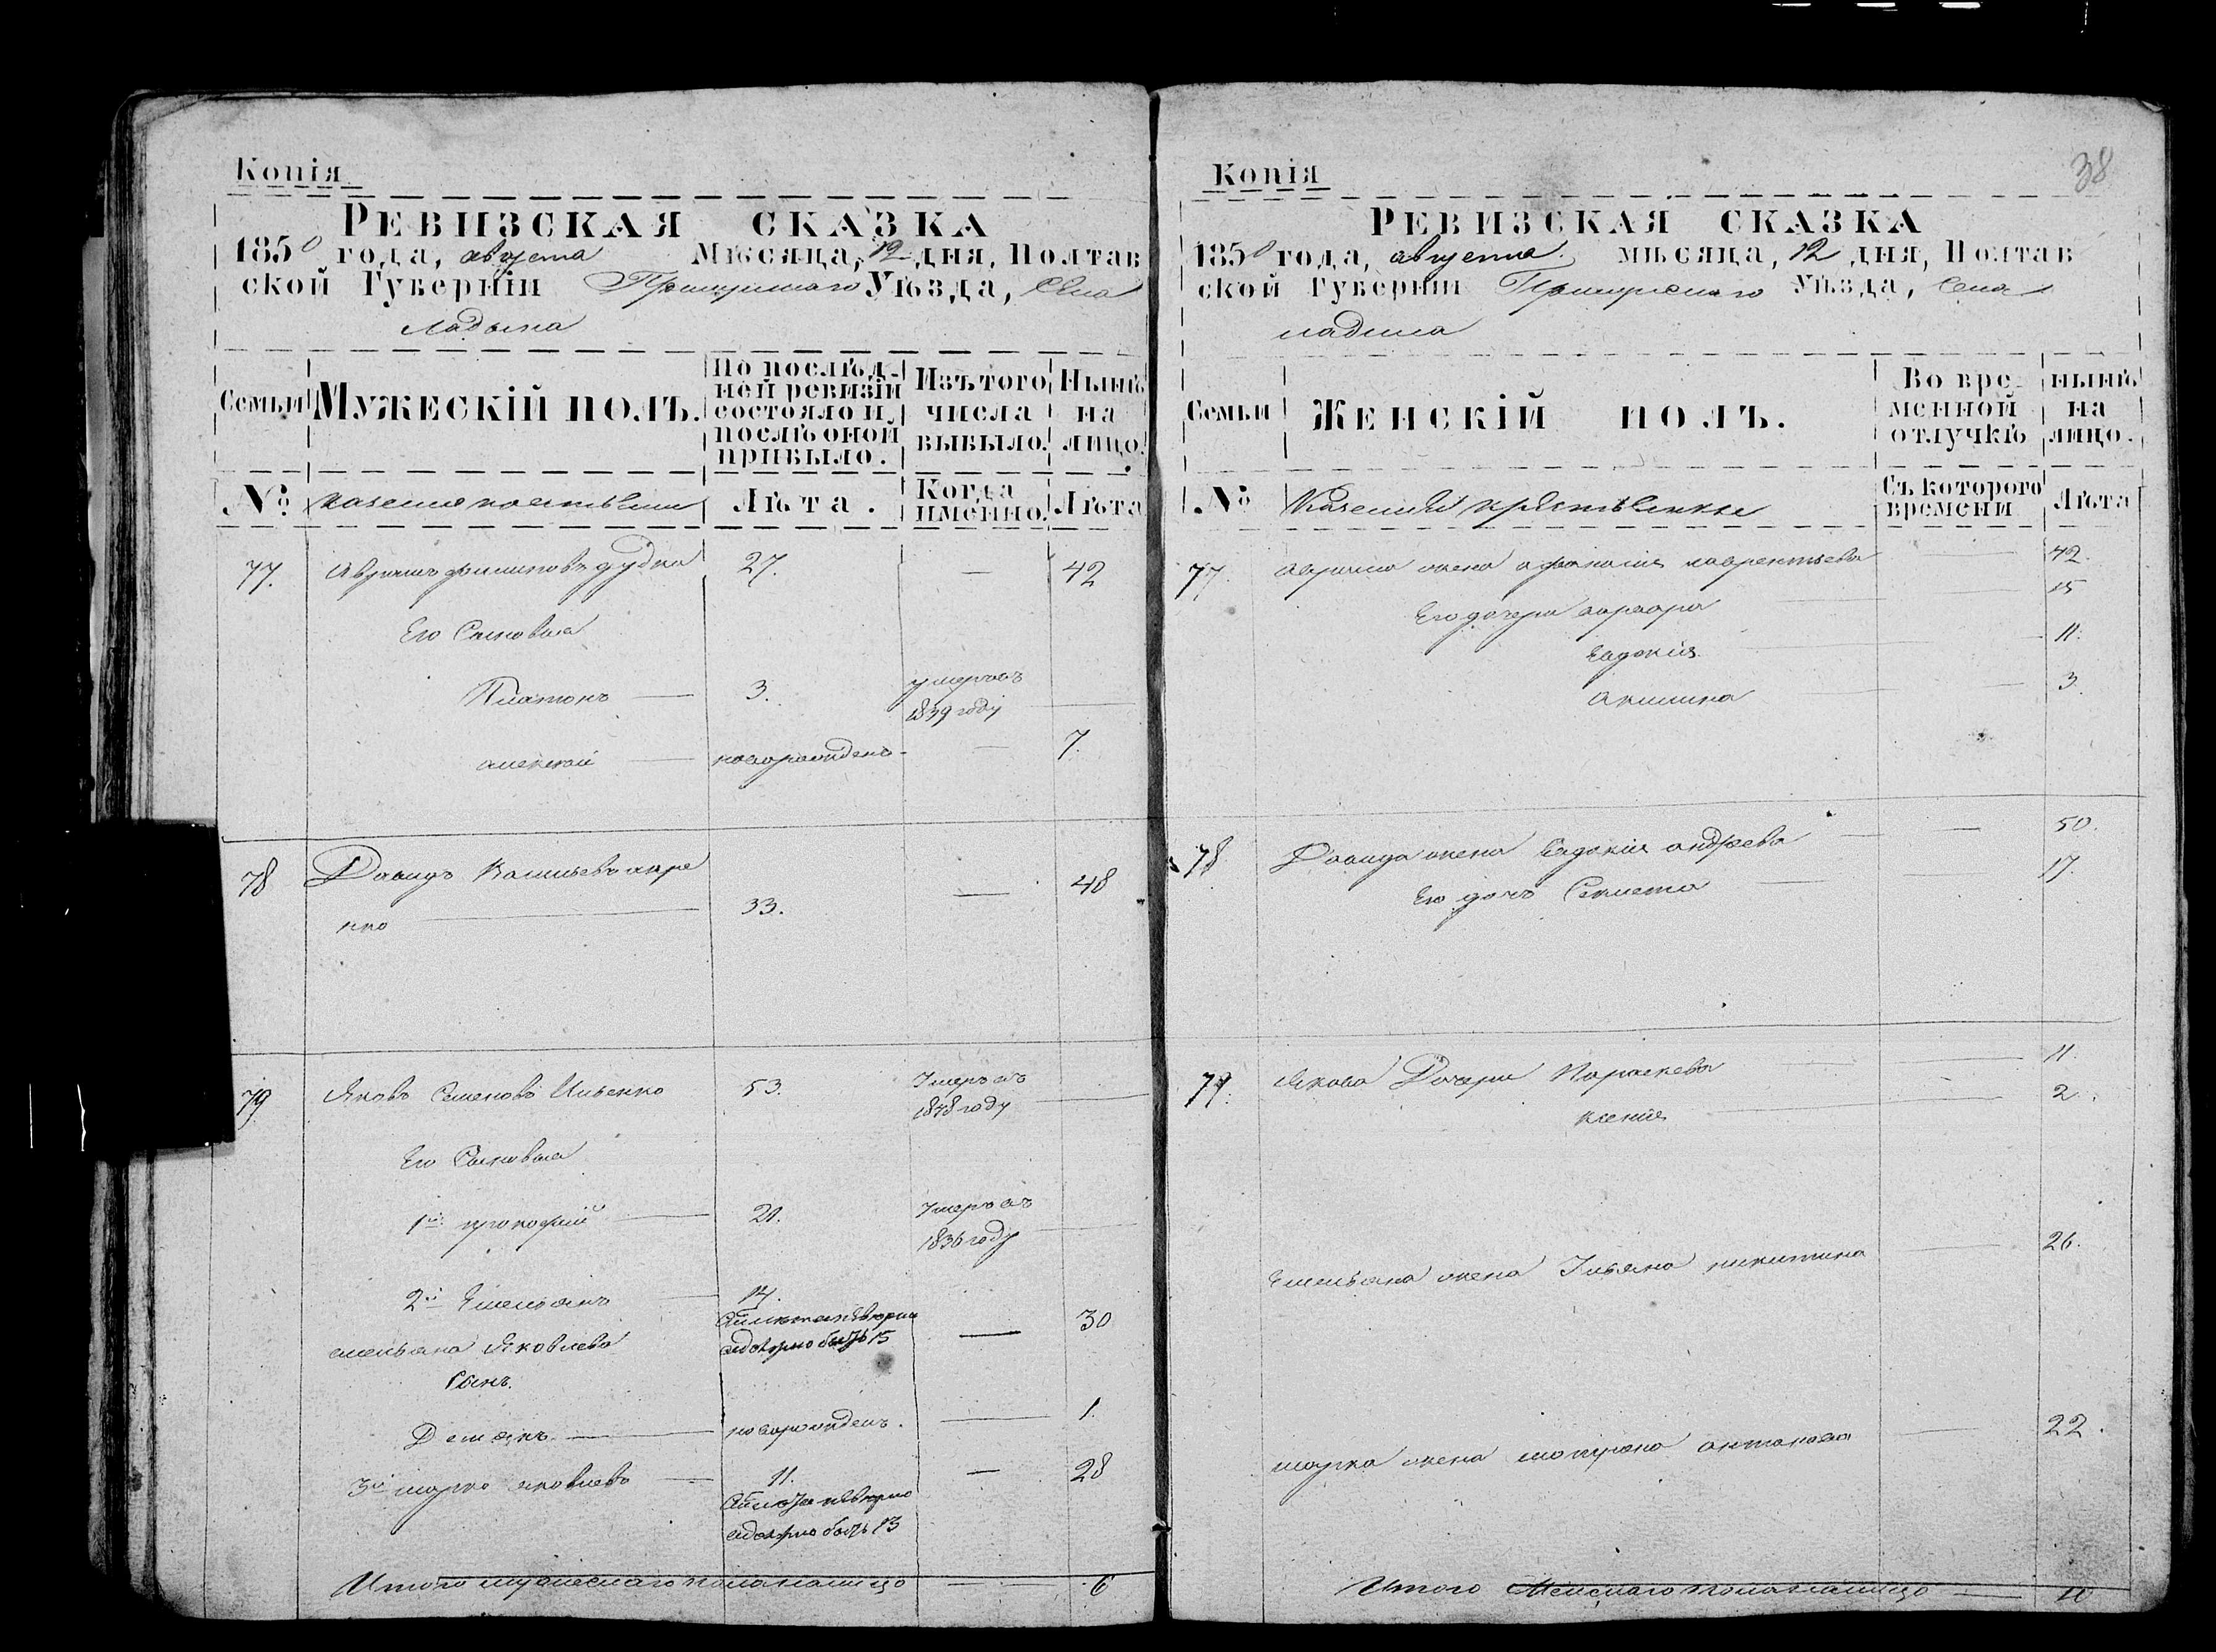 Копія
РЕВИЗСКАЯ СКАЗКА
1850 года, августа Мѣсяца, 12 дня, Полтав
ской Губерніи Прилуцкаго Уѣзда, Села
Ладына
Семьи
МУЖЕСКІЙ ПОЛЪ.
По послѣд-
ней ревизіи
состояло и
послѣ оной
прибыло.
Изъ того
числа
выбыло.
Нынѣ
на
лицо.
№
Лѣта.
Когда
именно.
Лѣта
77. Аврамъ Филиповъ дудка 27. — 42
Его Сыновья
Платонъ — 3. умеръ въ
1839 году
алексей — новорожденъ - — 7.
78 Давидъ Васильевъ
нко 33. — 48
79 Яковъ Семеновъ Ильенко 53. Умеръ въ
1848 году
Его Сыновья
1й прокофий — 21. Умеръ въ
1836 году
2й Емельянъ — 14.
а должно быть 15 — 30
емельяна Яковлева
Сынъ.
Демянъ — новорожденъ. — 1.
3й марко яковлевъ — 11. — 28
а должно быть 13
Итого мужескаго пола налицо — 6
Копія
38
РЕВИЗСКАЯ СКАЗКА
1850 года, августа мѣсяца, 12 дня, Полтав
ской Губерніи Прилуцкаго Уѣзда, Села
ладина
Семьи
ЖЕНСКІЙ ПОЛЪ.
Во вре-
менной
отлучкѣ
нынѣ
на
лицо.
№
Съ котораго
времени
Лѣта
77. аврама жена афанасия лаврентьева — 42.
Его дочери варвара — 15
Евдокия — 11.
акилина — 3.
78 Давида жена Евдокия андреева — 50.
Его дочь — 17.
79. Якова Дочери Параскева — 11.
Ксения — 2.
Емельяна жена Ульяна никитина — 26.
марка жена мотрона антонова — 22.
Итого Женскаго пола налицо — 10